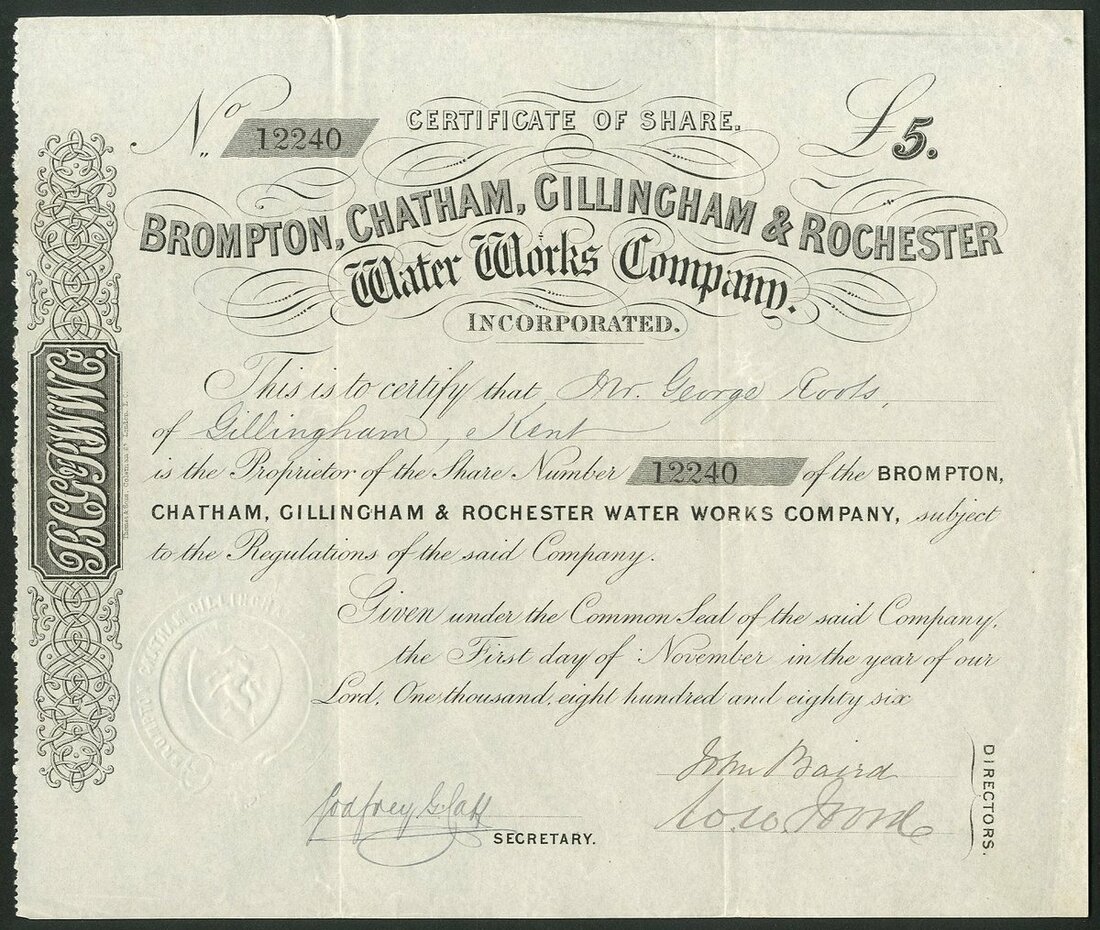 No. 12240
CERTIFICATE OF SHARE.
£5.
BROMPTON, CHATHAM, GILLINGHAM & ROCHESTER
Water Works Company.
INCORPORATED.
This is to certify that Mr. George Roots,
of Gillingham, Kent
is the Proprietor of the Share Number 12240 of the BROMPTON,
CHATHAM, GILLINGHAM & ROCHESTER WATER WORKS COMPANY, subject
to the Regulations of the said Company.
Given under the Common Seal of the said Company,
the First day of November in the year of our
Lord, One thousand, eight hundred and eighty six
John Baird
Godfrey
SECRETARY.
DIRECTORS.
B.C.G.&R.W.W.Co.